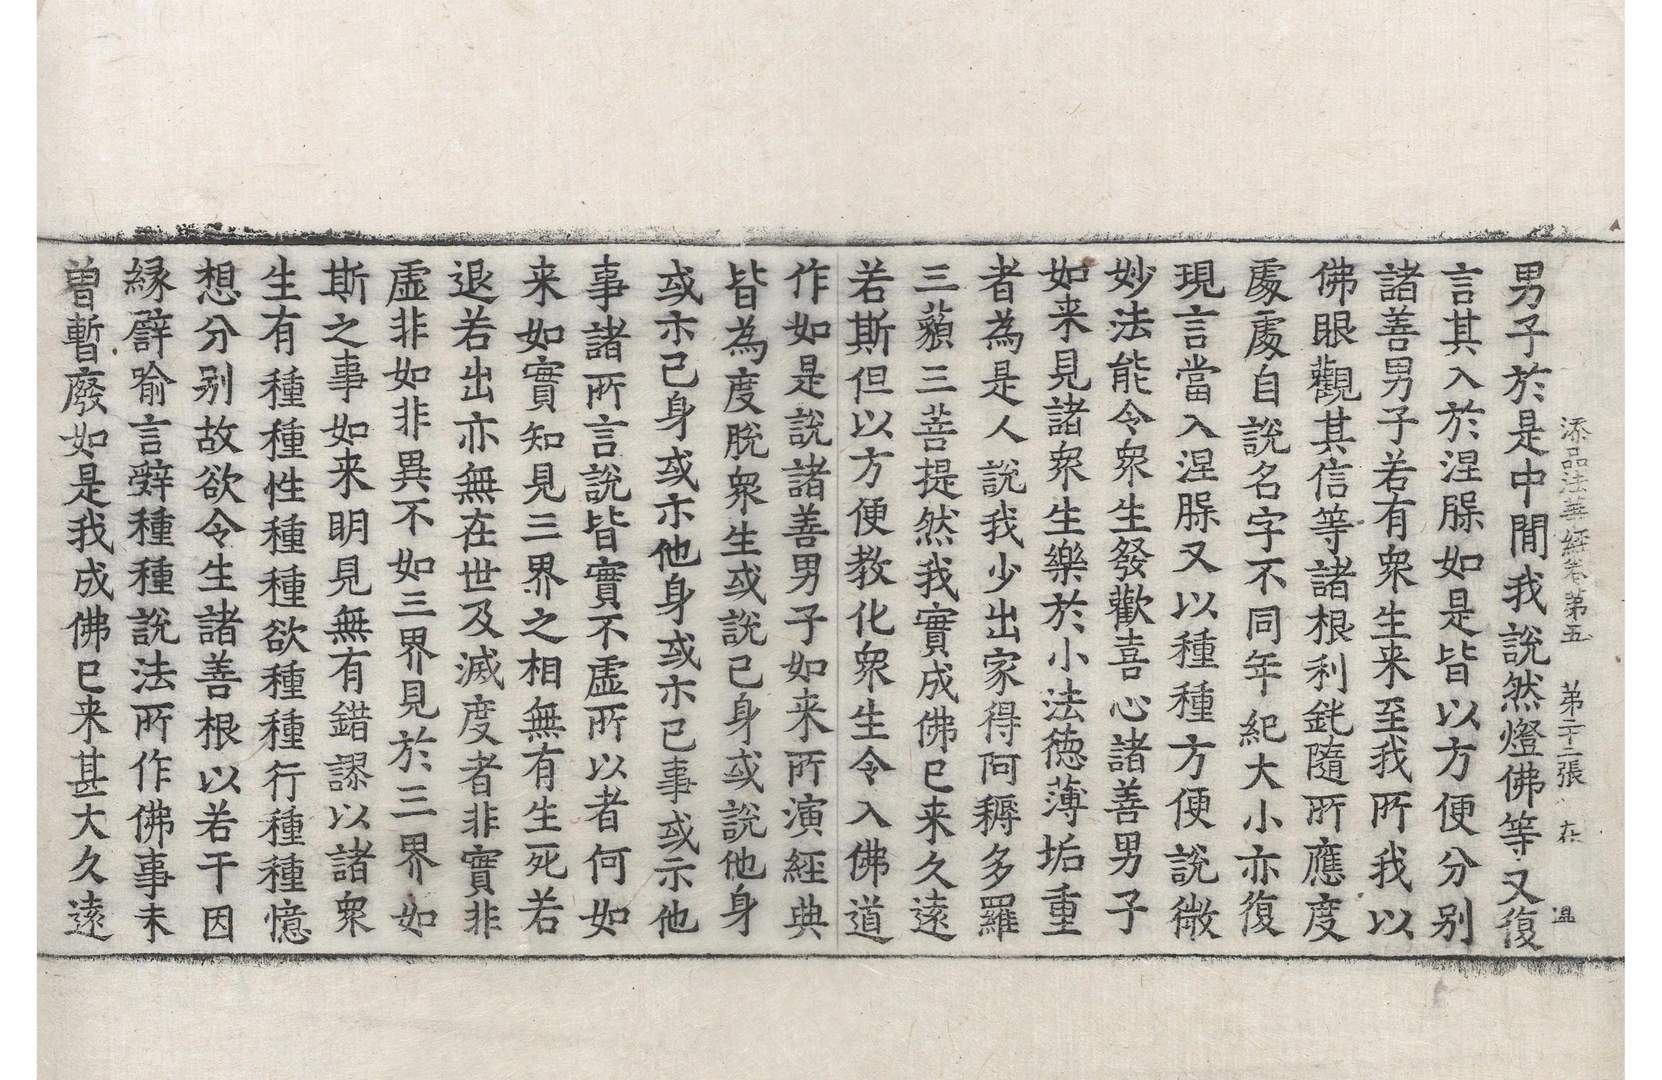 添品法華經卷第五　第二十二張　在　昷
男子於是中閒我說然燈佛等又復
言其入於涅槃如是皆以方便分別
諸善男子若有衆生来至我所我以
佛眼觀其信等諸根利鈍隨所應度
處處自說名字不同年紀大小亦復
現言當入涅槃又以種種方便說微
妙法能令衆生發歡喜心諸善男子
如来見諸衆生樂於小法徳薄垢重
者為是人說我少出家得阿耨多羅
三藐三菩提然我實成佛已来久遠
若斯但以方便教化衆生令入佛道
作如是說諸善男子如来所演經典
皆為度脫衆生或說己身或說他身
或示己身或示他身或示己事或示他
事諸所言說皆實不虛所以者何如
来如實知見三界之相無有生死若
退若出亦無在世及滅度者非實非
虛非如非異不如三界見於三界如
斯之事如来明見無有錯謬以諸衆
生有種種性種種欲種種行種種憶
想分别故欲令生諸善根以若干因
縁譬喻言辭種種說法所作佛事未
曾暫廢如是我成佛已来甚大久遠